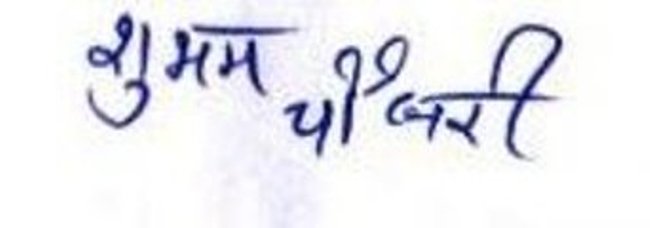 शुभम चौधरी